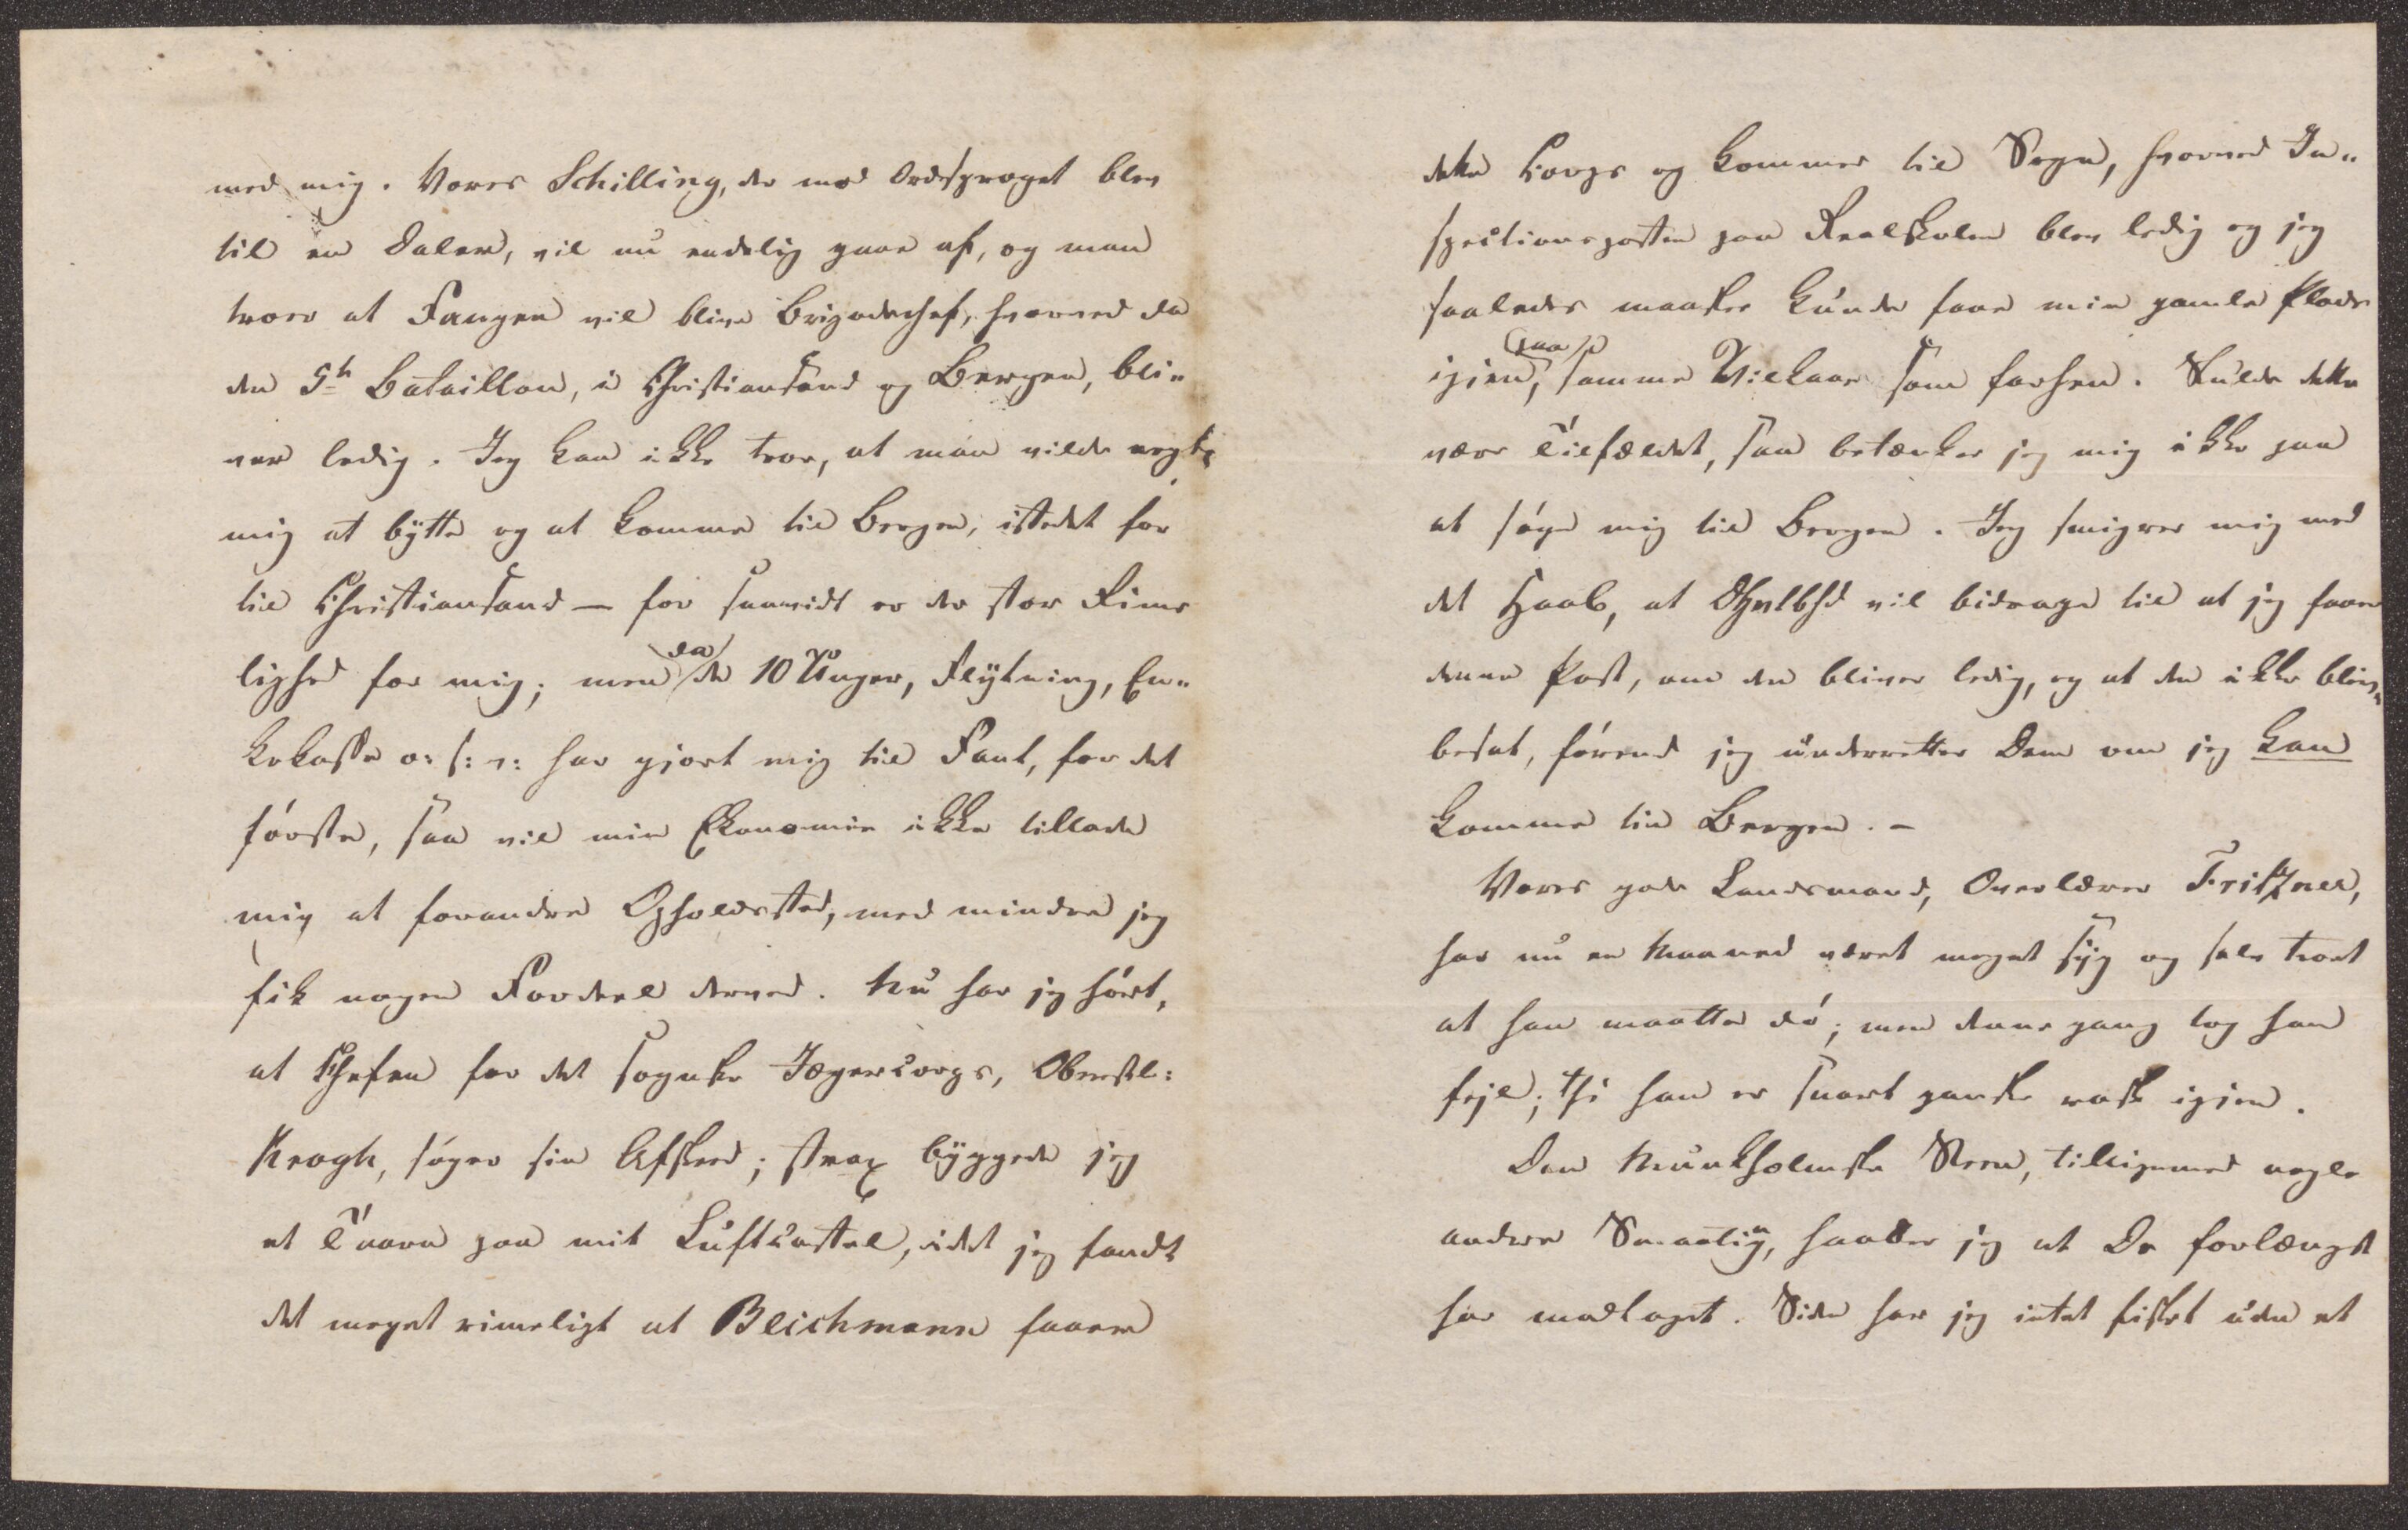 med mig. Vores Schilling, der mod Ordsproget blev
til en Daler, vil nu endelig gaae af, og man
troer at Fangen vil blive Brigadechef, hvorved da
den 5te Bataillon, i Christiansand og Bergen, bli„
ver ledig. Jeg kan ikke troe, at man vilde negte
mig at bÿtte og at komme til Bergen, istedet for
til Christiansand — for saavidt er der stor Rime
lighed for mig; men da de 10 Unger, Flÿtning, En„
kekasse o: s: v: har gjort mig til Fant, for det
første, saa vil min Ekonomie ikke tillade
mig at forandre Opholdssted, med mindre jeg
fik nogen Fordeel derved. Nu har jeg hørt,
at Chefen for det sognske Jægercorps, Oberstl:
Krogh, søger sin Afskeed; strax bÿggede jeg
et Taarn paa mit Luftcastel, idet jeg fandt
det meget rimeligt at Bleichmann faaer
dette Corps og kommer til Sogn, hvorved In„
spectionsposten paa Realskolen blev ledig og jeg
saaledes maaskee kunde faae min gamle Plads
igien, paa samme Vielkaar som forhen. Skulde dette
være Tilfældet, saa betænker jeg mig ikke paa
at søge mig til Bergen. Jeg smigrer mig med
det Haab, at DHvlbhd vil bidrage til at jeg faaer
denne Post, om den bliver ledig, og at den ikke bliver
besat, førend jeg underretter Dem om jeg kan
komme til Bergen. –
Vores gode Landsmand, Overlærer Fritzner,
har nu en Maaned været meget sÿg og selv troet
at han maatte dø; men denne gang tog han
fejl; thi han er snart ganske rask igjen.
Den Munkholmske Steen, tilligemed nogle
andre Smaatig, haaber jeg at De forlængst
har modtaget. Siden har jeg intet fisket uden et